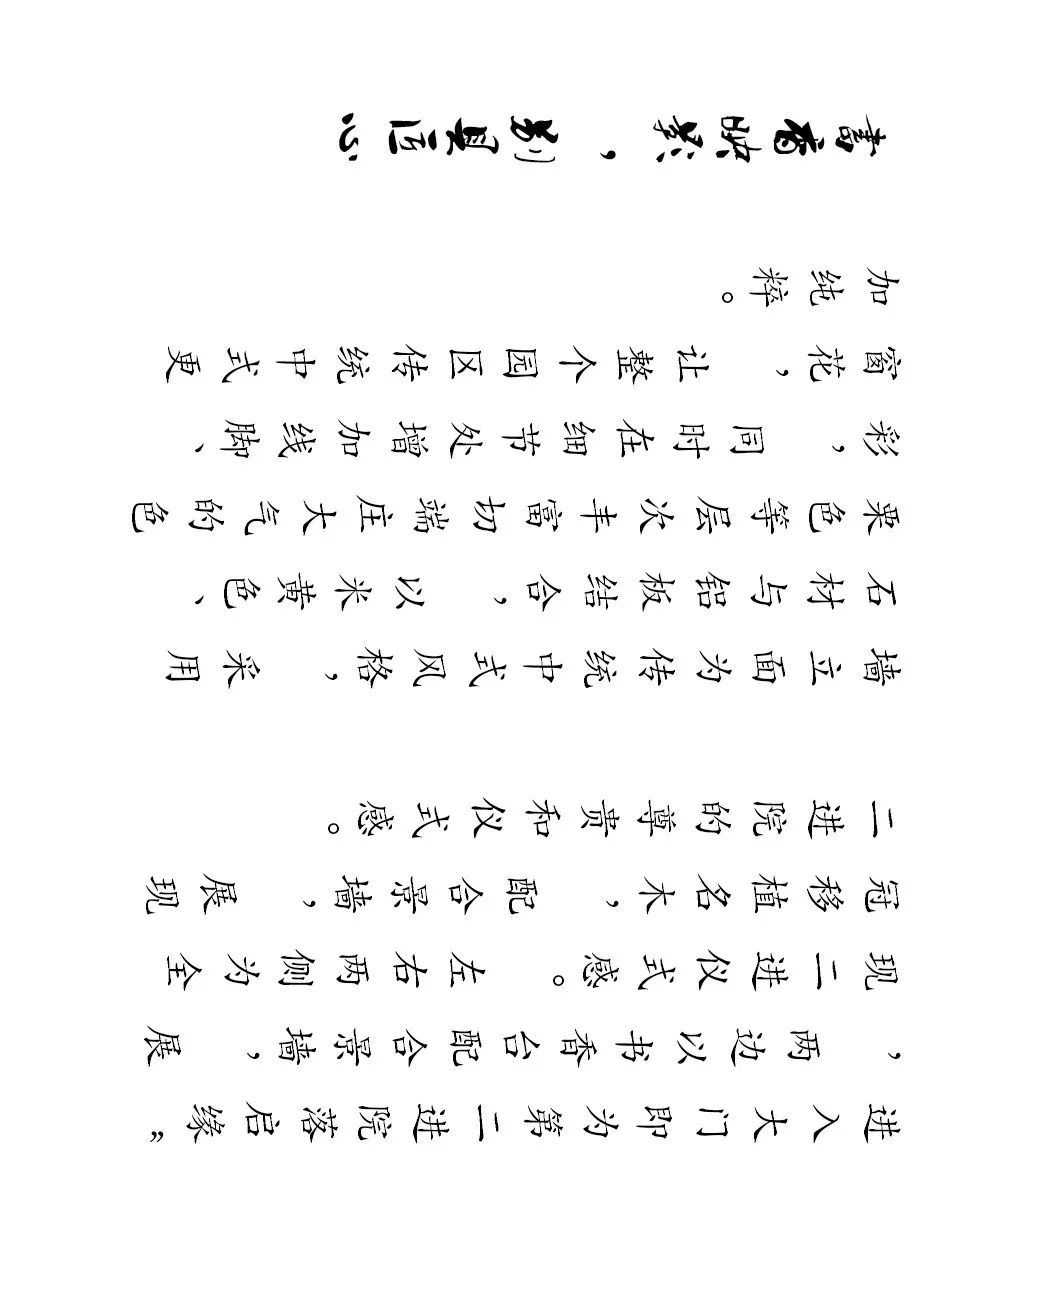 进入大门即为第二进院落启缘”
，两边以书香台配合景墙，展
现二进仪式感。左右两侧为全
冠移植名木，配合景墙，展现
二进院的尊贵和仪式感。
墙立面为传统中式风格，采用
石材与铝板结合，以米黄色、
栗色等层次丰富切端庄大气的色
彩，同时在细节处增加线脚、
窗花，让整个园区传统中式更
加纯粹。
書香映紫，别具匠心